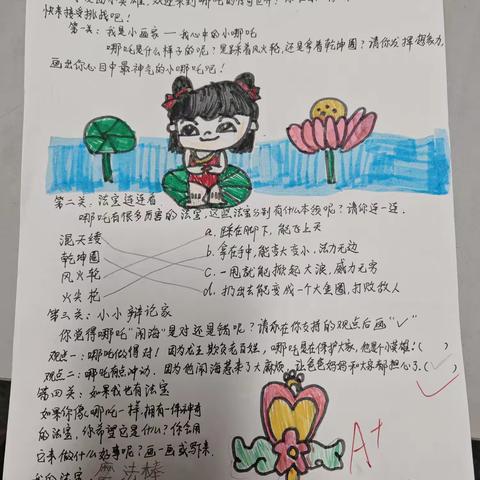 快来接受挑战吧！
第一关：我是小画家——我心中的小哪吒
哪吒是什么样子的呢？是踩着风火轮，还是拿着乾坤圈？请你发挥想象力，
画出你心目中最神气的小哪吒吧！
第二关：法宝连连看
哪吒有很多厉害的法宝，这些法宝分别有什么本领呢？请你连一连.
混天绫
乾坤圈
风火轮
火尖枪
a. 踩在脚下，能飞上天
b. 拿在手中，能变大变小，法力无边
c. 一甩就能掀起大浪，威力无穷
d. 扔出去能变成一个大金圈，打败敌人
第三关：小小辩论家
你觉得哪吒"闹海"是对还是错呢？请你在你支持的观点后画"✓"
观点一：哪吒做得对！因为龙王欺负老百姓，哪吒是在保护大家，他是个小英雄！( )
观点二：哪吒有点冲动.因为他闹海惹来了大麻烦，让爸爸妈妈和大家都担心了.(✓)
第四关：如果我也有法宝
如果你像哪吒一样，拥有一件神奇
的法宝，你希望它是什么？你会用
它来做什么好事呢？画一画或写来.
魔法棒
A+